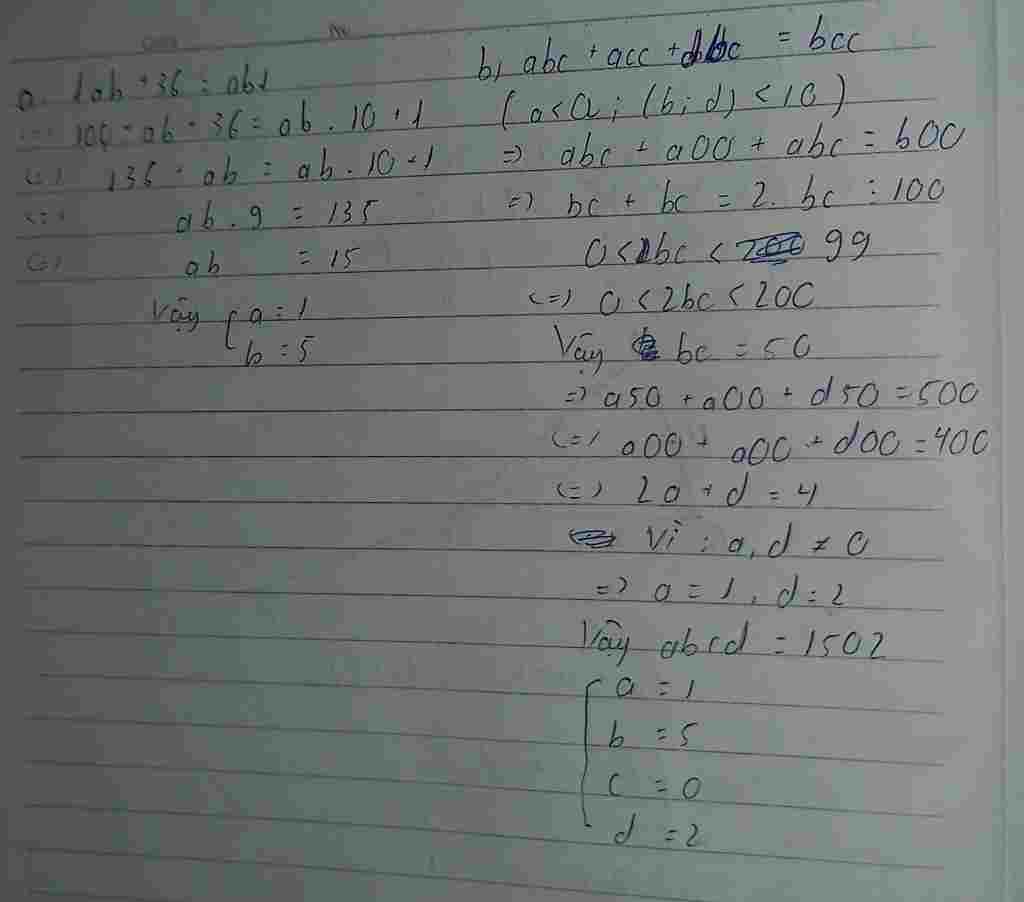 a. 1ab + 36 = ab1
<=> 100 + ab + 36 = ab . 10 + 1
<=> 136 + ab = ab . 10 + 1
<=> ab . 9 = 135
<=> ab = 15
Vậy { a = 1
b = 5
b, abc + acc + dbc = bcc
(a < a ; (b ; d) < 10)
=> abc + a00 + abc = b00
=> bc + bc = 2. bc : 100
0 < bc < 99
<=> 0 < 2bc < 200
Vậy bc = 50
=> a50 + a00 + d50 = 500
<=> a00 + a00 + d00 = 400
<=> 2a + d = 4
Vì : a, d ≠ 0
=> a = 1, d = 2
Vậy abcd = 1502
{ a = 1
b = 5
c = 0
d = 2